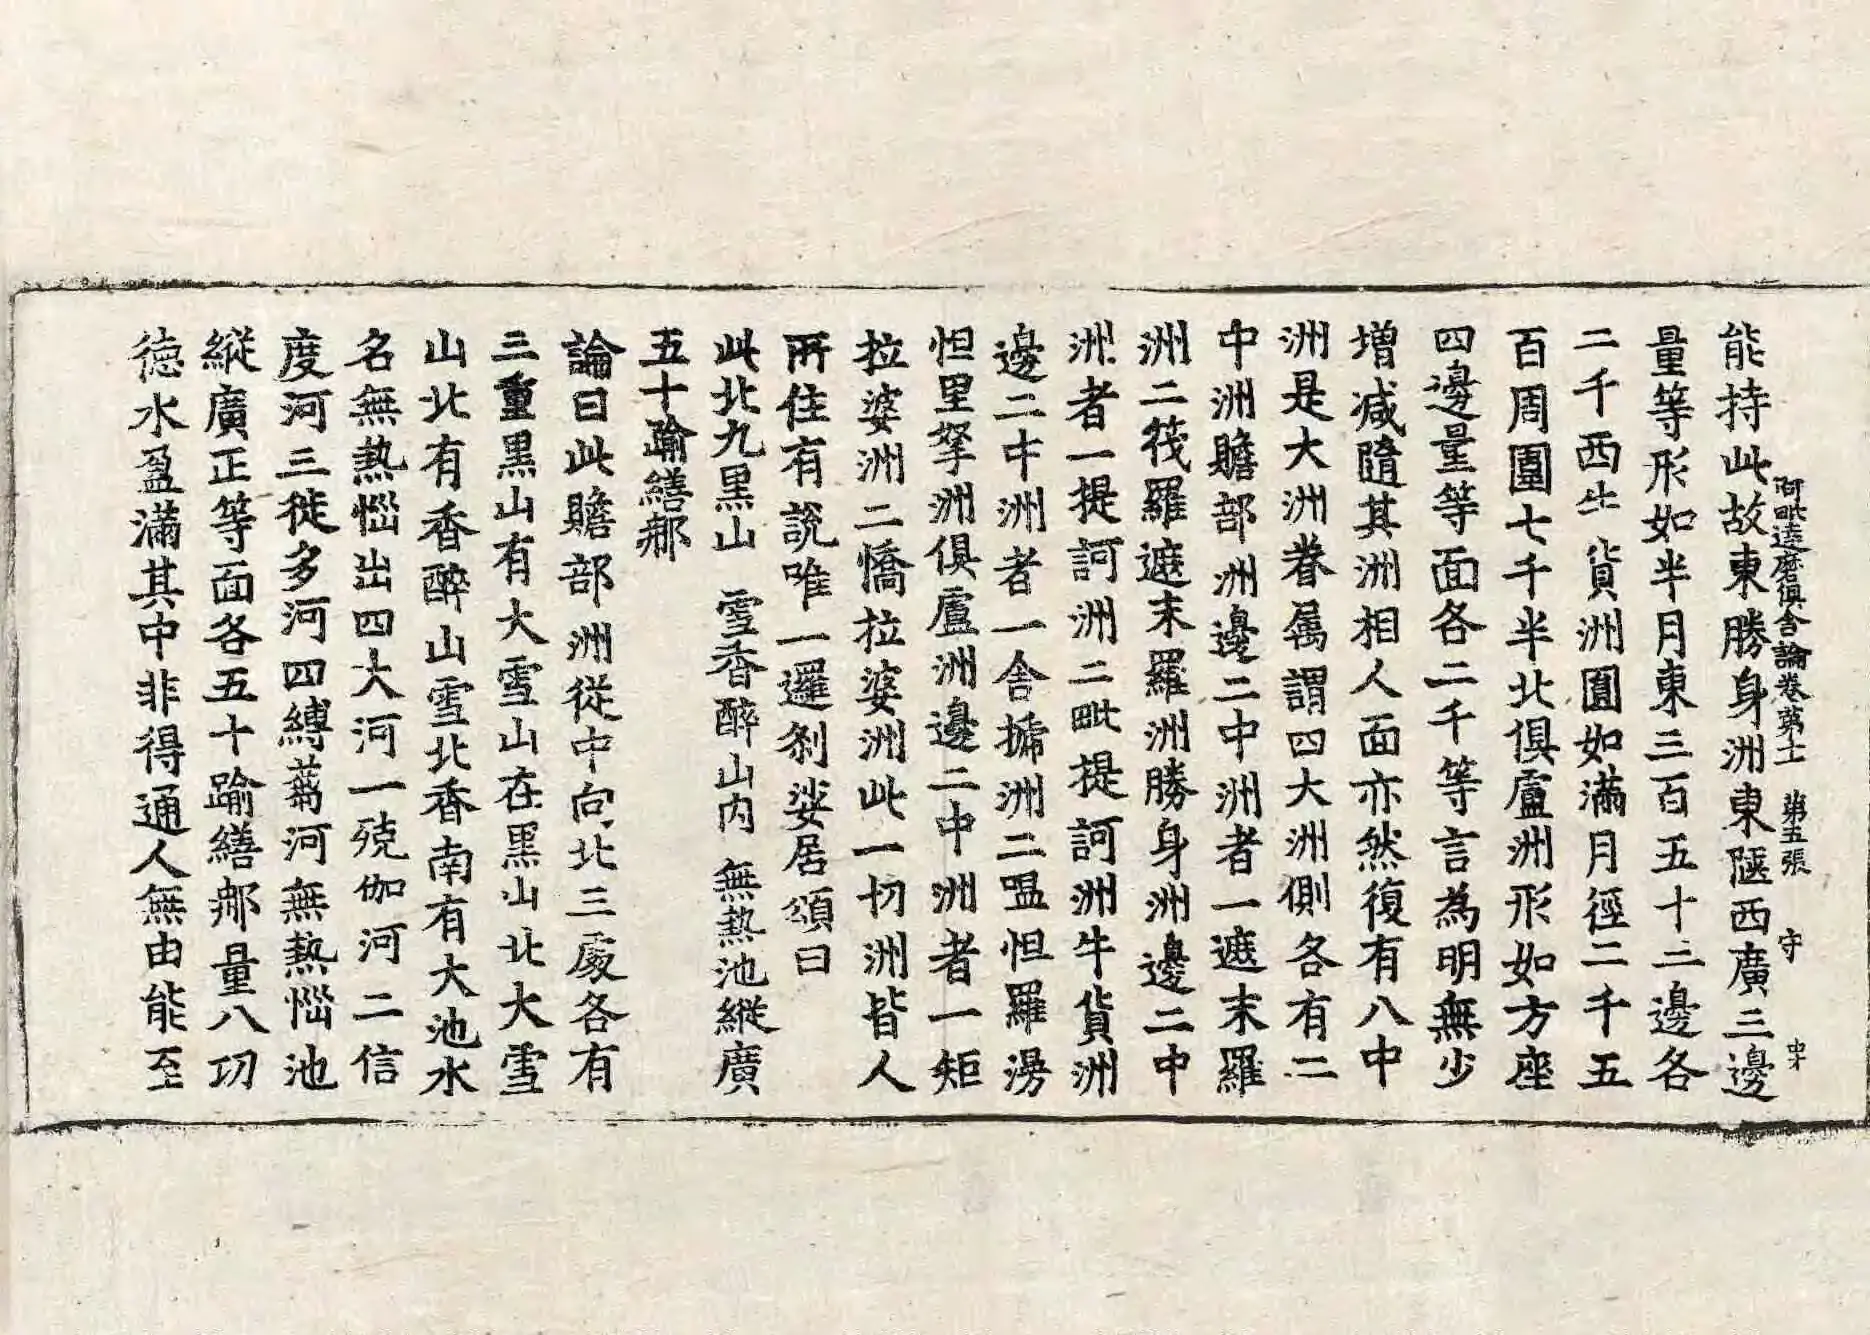 阿毗達磨俱舍論卷第十一 第五張 守
能持此故東勝身洲東陿西廣三邊
量等形如半月東三百五十三邊各
二千西牛貨洲圓如滿月徑二千五
百周圍七千半北俱盧洲形如方座
四邊量等面各二千等言為明無少
增減隨其洲相人面亦然復有八中
洲是大洲眷屬謂四大洲側各有二
中洲贍部洲邊二中洲者一遮末羅
洲二筏羅遮末羅洲勝身洲邊二中
洲者一提訶洲二毗提訶洲牛貨洲
邊二中洲者一舍搋洲二嗢怛羅漫
怛里拏洲俱盧洲邊二中洲者一矩
拉婆洲二憍拉婆洲此一切洲皆人
所住有說唯一邏剎娑居頌曰
此北九黑山 雪香醉山內 無熱池縱廣
五十踰繕那
論曰此贍部洲從中向北三處各有
三重黑山有大雪山在黑山北大雪
山北有香醉山雪北香南有大池水
名無熱惱出四大河一殑伽河二信
度河三徙多河四縛芻河無熱惱池
縱廣正等面各五十踰繕那量八功
德水盈滿其中非得通人無由能至